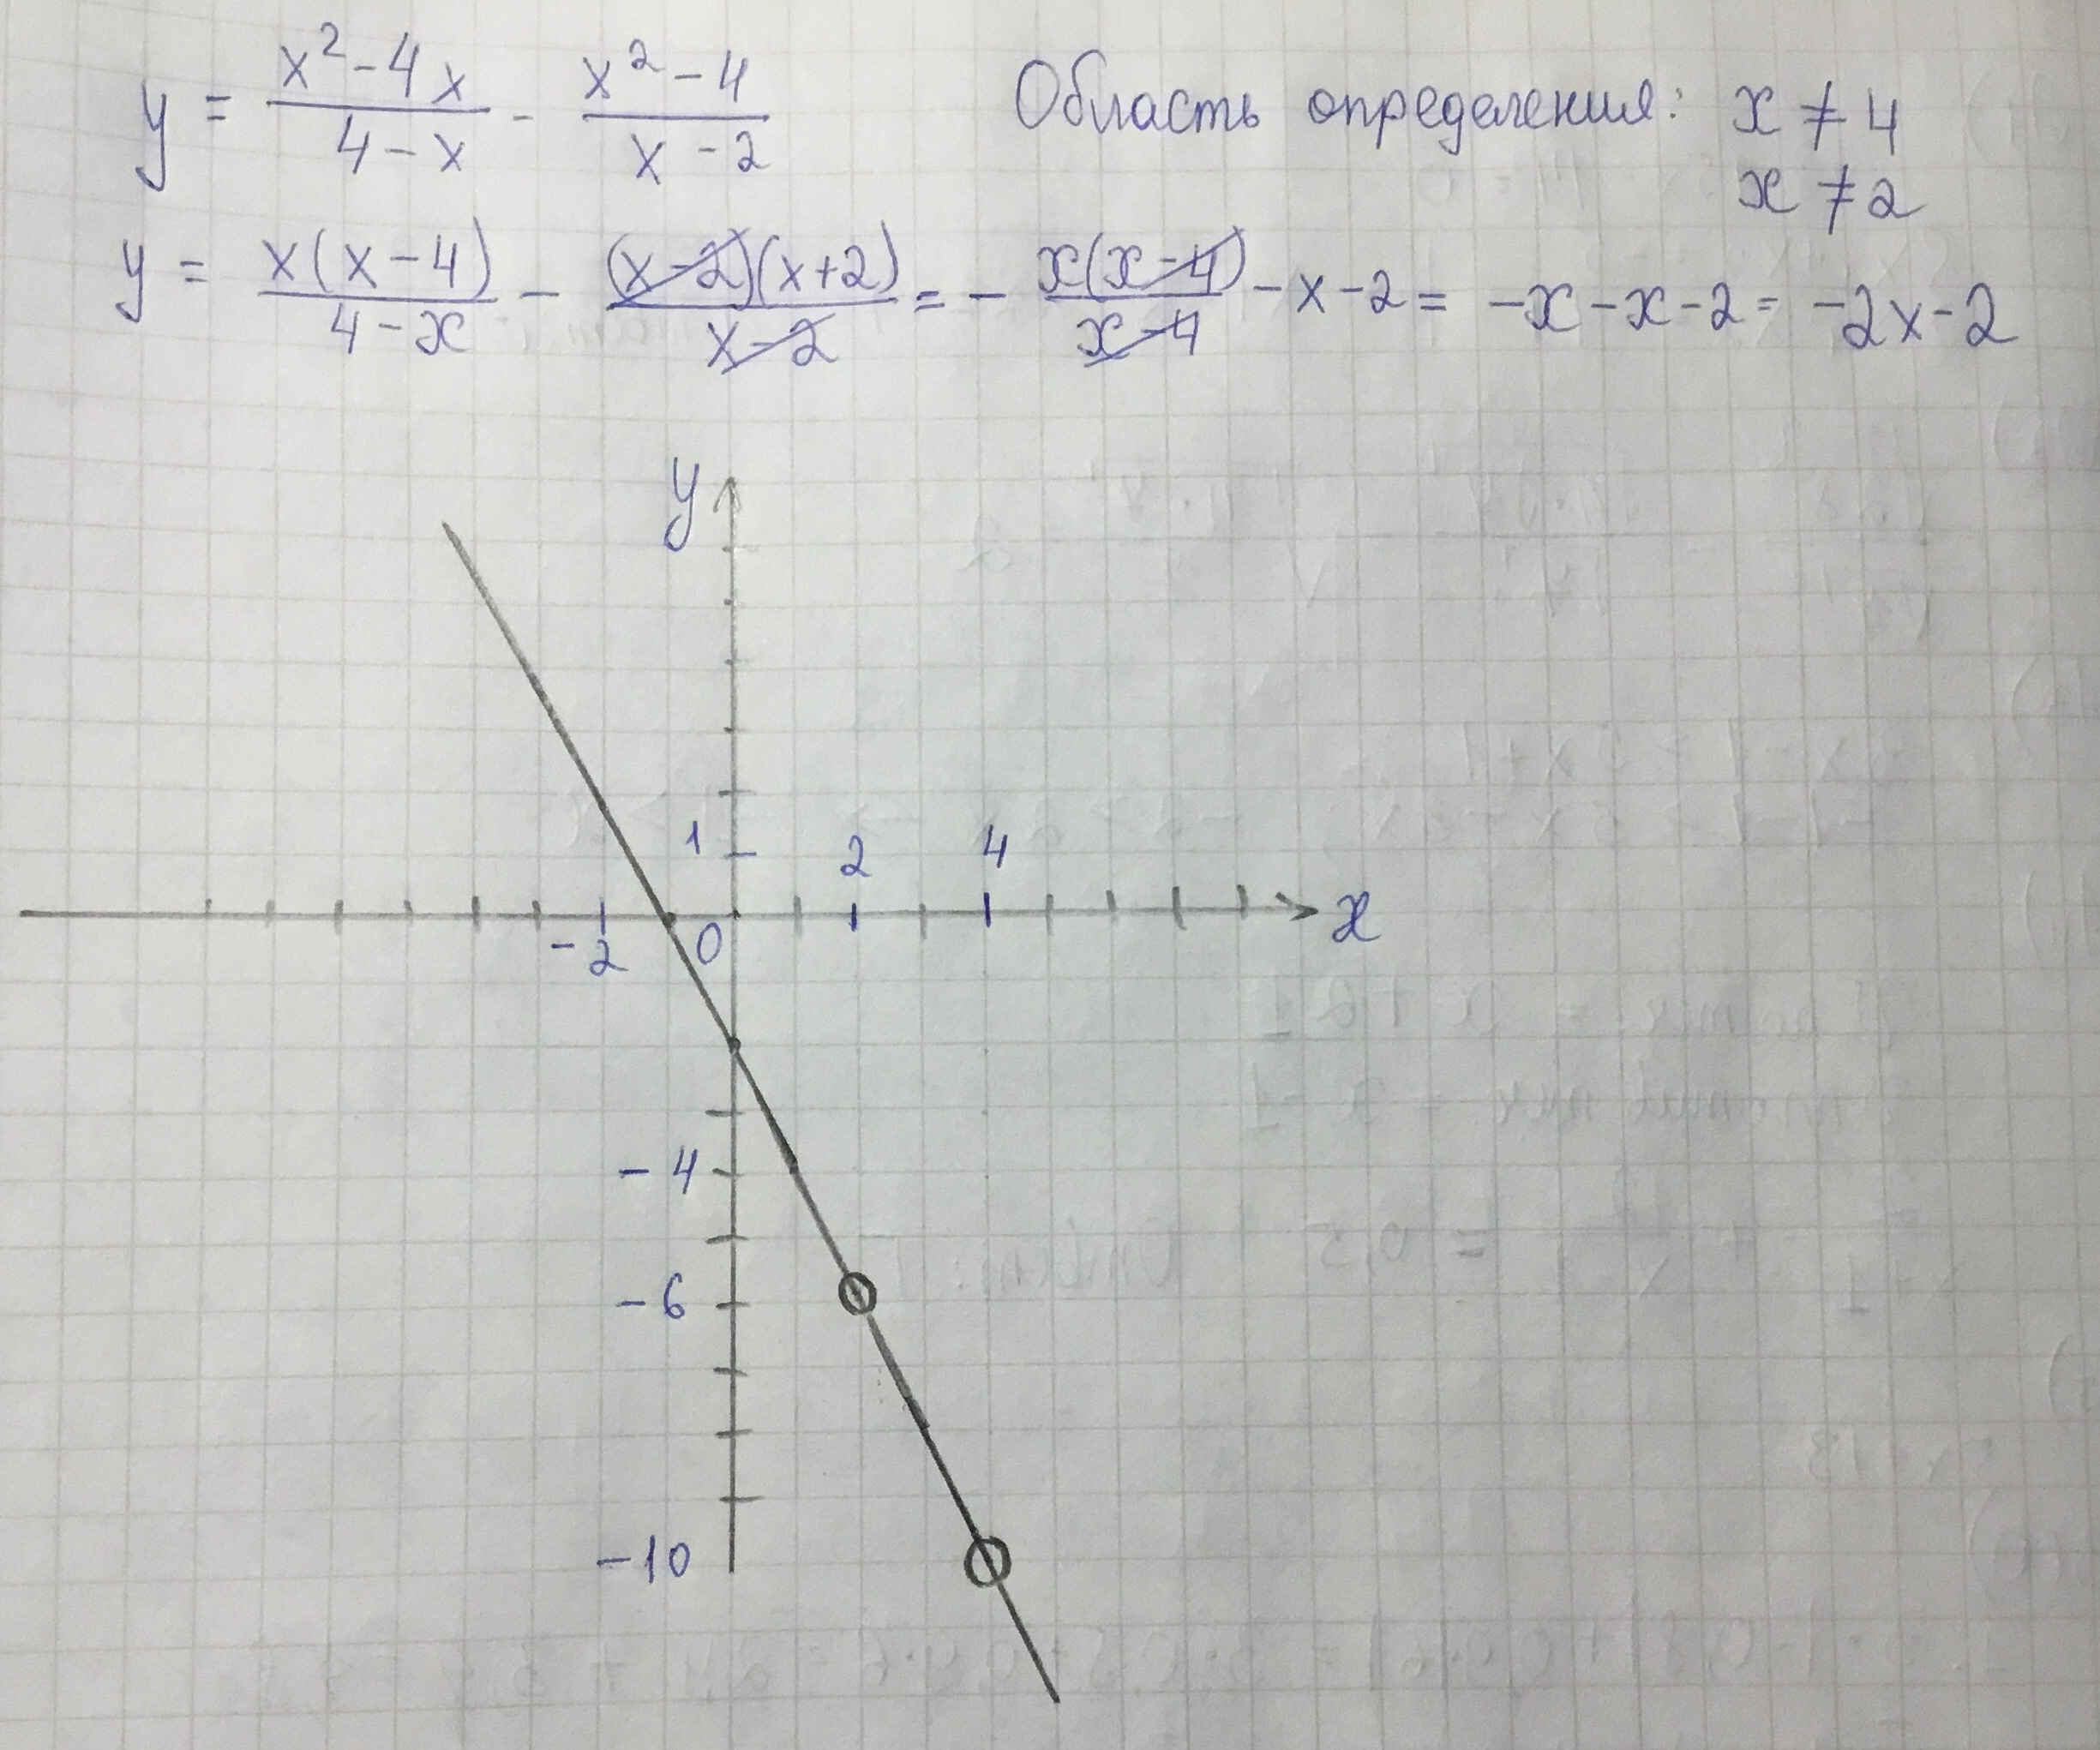 y = (x² - 4x)/(4 - x) - (x² - 4)/(x - 2) Область определения: x ≠ 4
x ≠ 2
y = x(x - 4)/(4 - x) - (x - 2)(x + 2)/(x - 2) = - x(x - 4)/(x - 4) - x - 2 = -x - x - 2 = -2x - 2
y
1
2
4
-2
0
x
-4
-6
-10